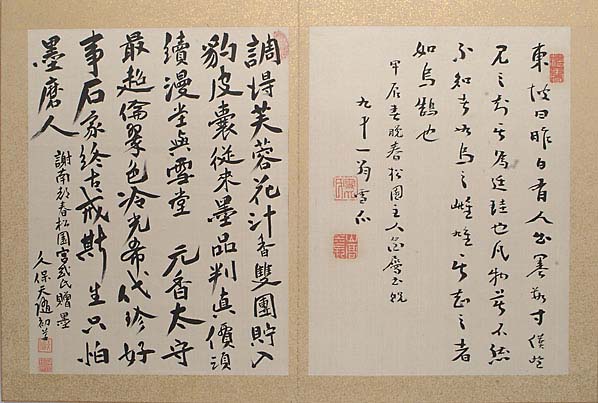 東坡曰昨日有人出墨數寸僕望
見之知其為廷珪也凡物莫不然
不知者如烏之雌雄其知之者
如烏鵠也
甲辰春晚春松園主人
九十一翁雪爪
調得芙蓉花汁香雙團貯入
豹皮囊從來墨品判真價頭
續漫堂與雪堂 元香太守
最超倫翠色冷光希代珍好
事石家終古戒斯生只怕
墨磨人
謝南部春松園宮武氏贈墨
久保天隨初草